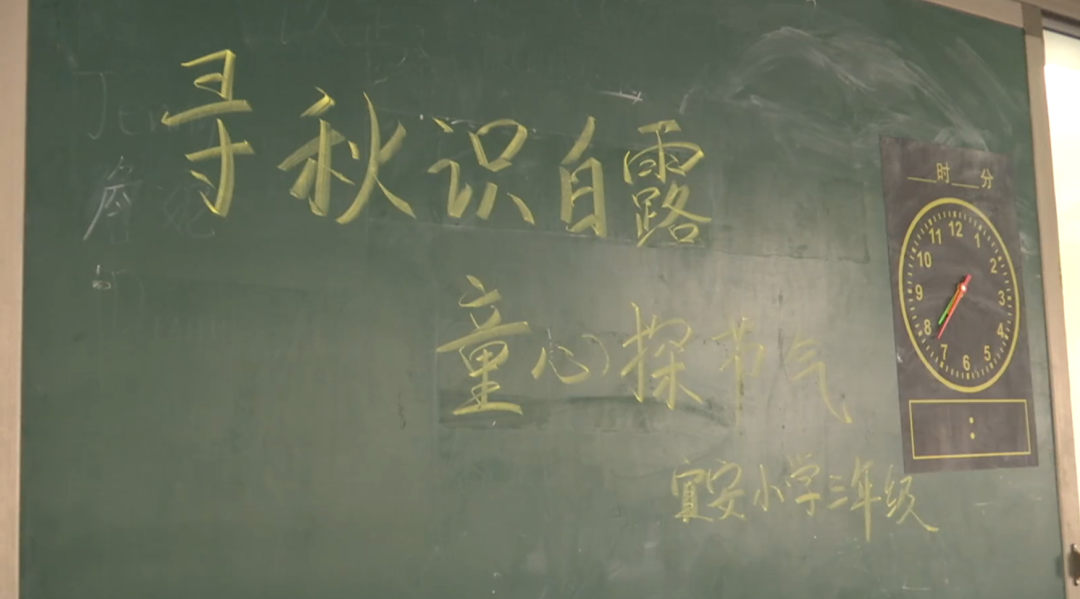 寻秋识自露
童心探节气
宜安小学三年级
时 分
12
1
2
3
4
5
6
7
8
9
10
11
: